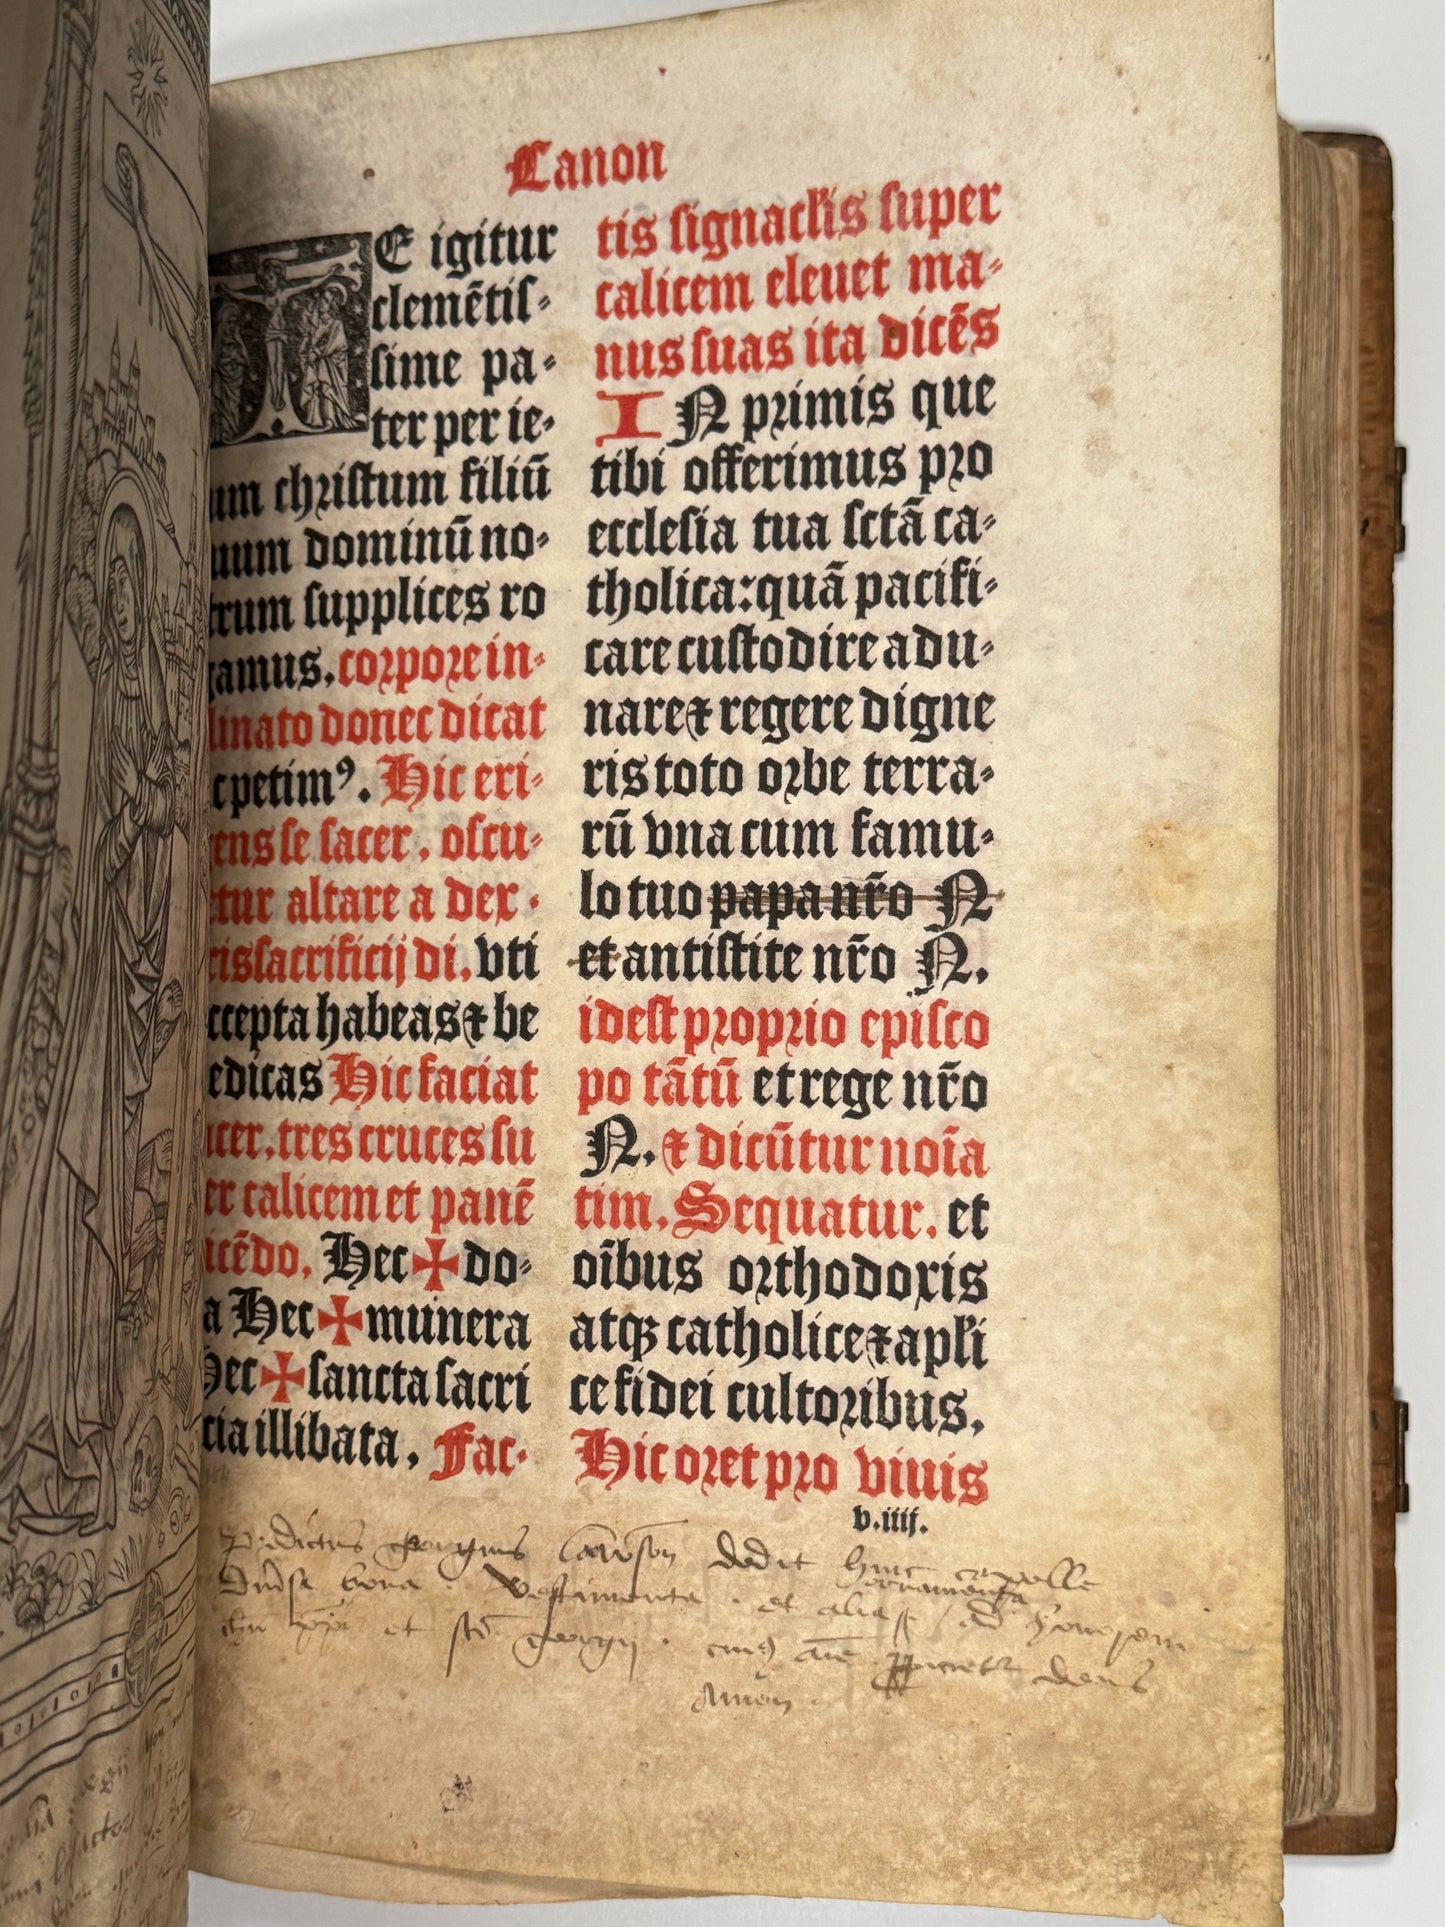 Canon
TE igitur
clemētis⸗
sime pa⸗
ter per ie⸗
um christum filiū
uum dominū no⸗
trum supplices ro
amus. corpore in⸗
linato donec dicat
c petimꝰ. Hic eri⸗
ens se sacer. oscu⸗
tur altare a dex⸗
ris sacrificij di. vti
ccepta habeas ⁊ be
edicas Hic faciat
acer. tres cruces su
er calicem et panē
icēdo. Hec ✠ do⸗
a Hec ✠ munera
hec ✠ sancta sacri
cia illibata. Fac⸗
tis signaclis super
calicem eleuet ma⸗
nus suas ita dicēs
IN primis que
tibi offerimus pro
ecclesia tua sctā ca⸗
tholica: quā pacifi⸗
care custodire adu⸗
nare ⁊ regere digne
ris toto orbe terra⸗
rū vna cum famu⸗
lo tuo papa nr̄o N
et antistite nr̄o N.
idest proprio episco
po tātū et rege nr̄o
N. ⁊ dicūtur noīa
tim. Sequatur. et
oībus orthodoxis
atqꝫ catholice ⁊ apli
ce fidei cultoribus.
Hic oret pro viuis
v.iiij.
georgius dedit huic capelle
bona . vestimenta . et alia ornamenta ad honorem
et georgij . cuiꝰ aīe deus
Amen .